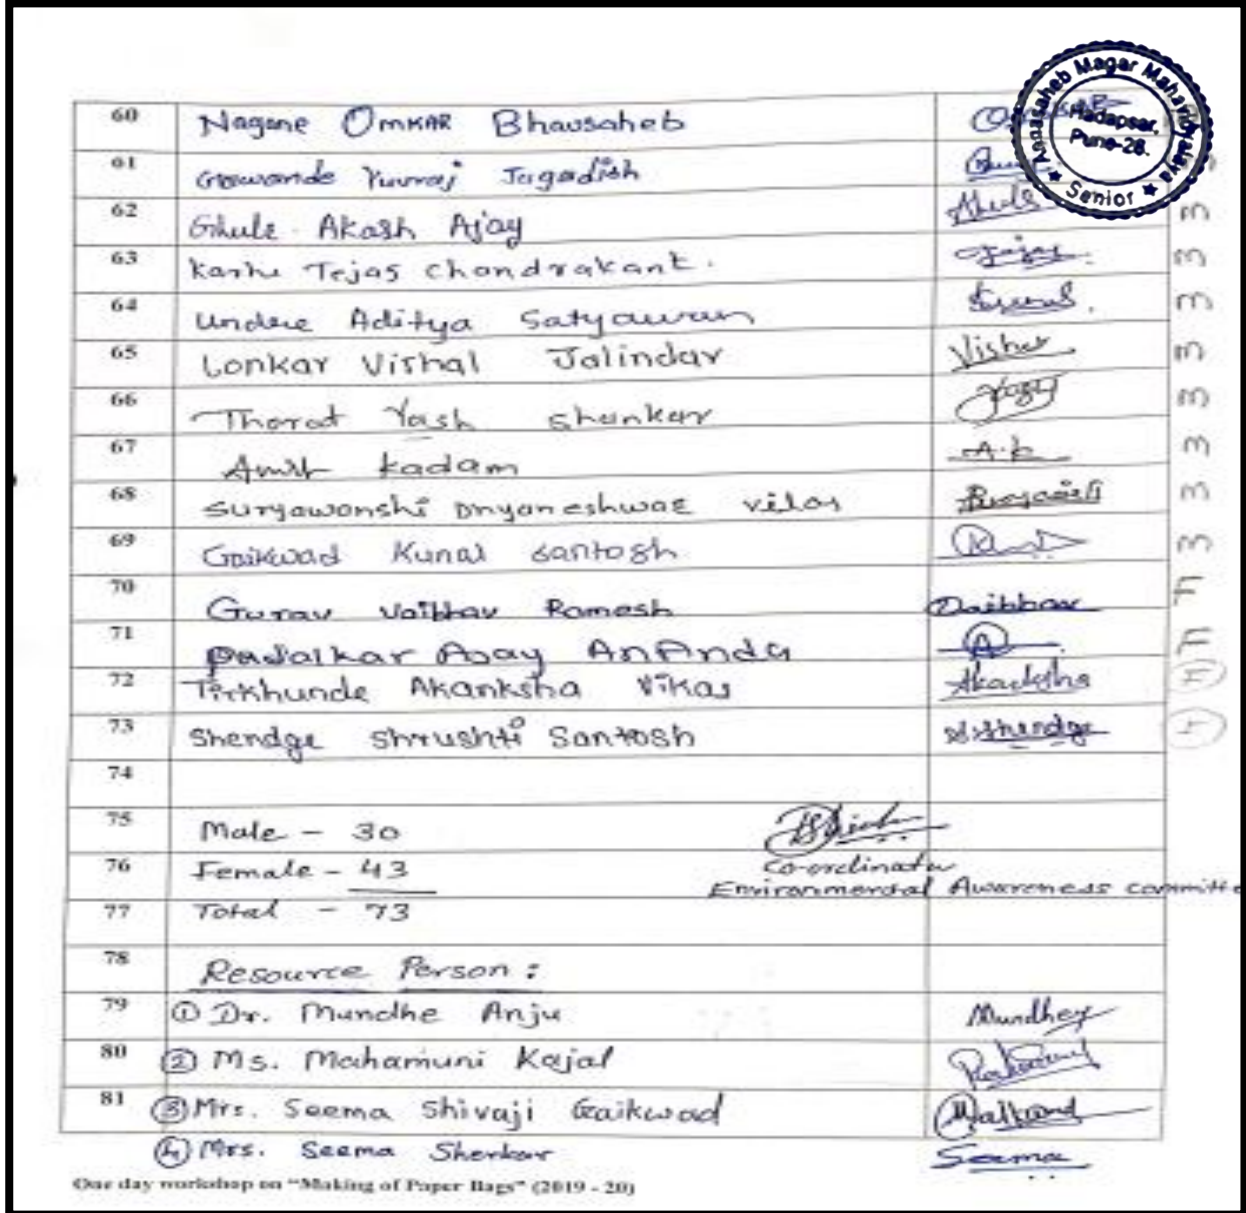 Annasaheb Magar Mahavidyalaya
Hadapsar,
Pune-28.
★ Senior ★
60 Nagane Omkar Bhausaheb
61 Gawande Yuvraj Jagadish M
62 Ghule Akash Ajay Ahule M
63 Karhe Tejas Chandrakant. M
64 Undre Aditya Satyawan M
65 Lonkar Vishal Jalindar Vishal M
66 Thorat Yash Shankar M
67 Amit Kadam A.K M
68 Suryawanshi Dnyaneshwar vilas M
69 Gaikwad Kunal Santosh M
70 Gurav Vaibhav Ramesh Vaibhav F
71 Padalkar Ajay Ananda A F
72 Tirkhunde Akanksha Vikas Akanksha F
73 Shendge Shrushti Santosh S.Shendge F
74
75 Male - 30
76 Female - 43 Co-ordinator
Environmental Awareness committe
77 Total - 73
78 Resource Person :
79 ① Dr. Mundhe Anju Mundhe
80 ② Ms. Mahamuni Kajal
81 ③ Mrs. Seema Shivaji Gaikwad Gaikwad
④ Mrs. Seema Sherkar Seema
One day workshop on "Making of Paper Bags" (2019 - 20)